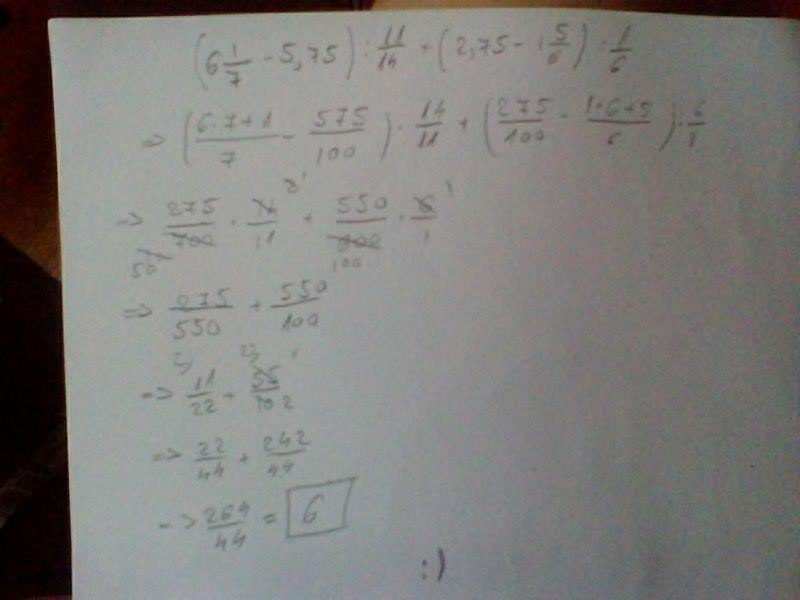 (6 1/7 - 5,75) : 11/14 + (2,75 - 1 5/6) : 1/6
=> (6·7+1/7 - 575/100) · 14/11 + (275/100 - 1·6+5/6) · 6/1
=> 275/700 · 14/11 + 550/600 · 6/1
50 100
=> 275/550 + 550/100
=> 11/22 + 55/10
=> 22/44 + 242/44
=> 264/44 = 6
:)